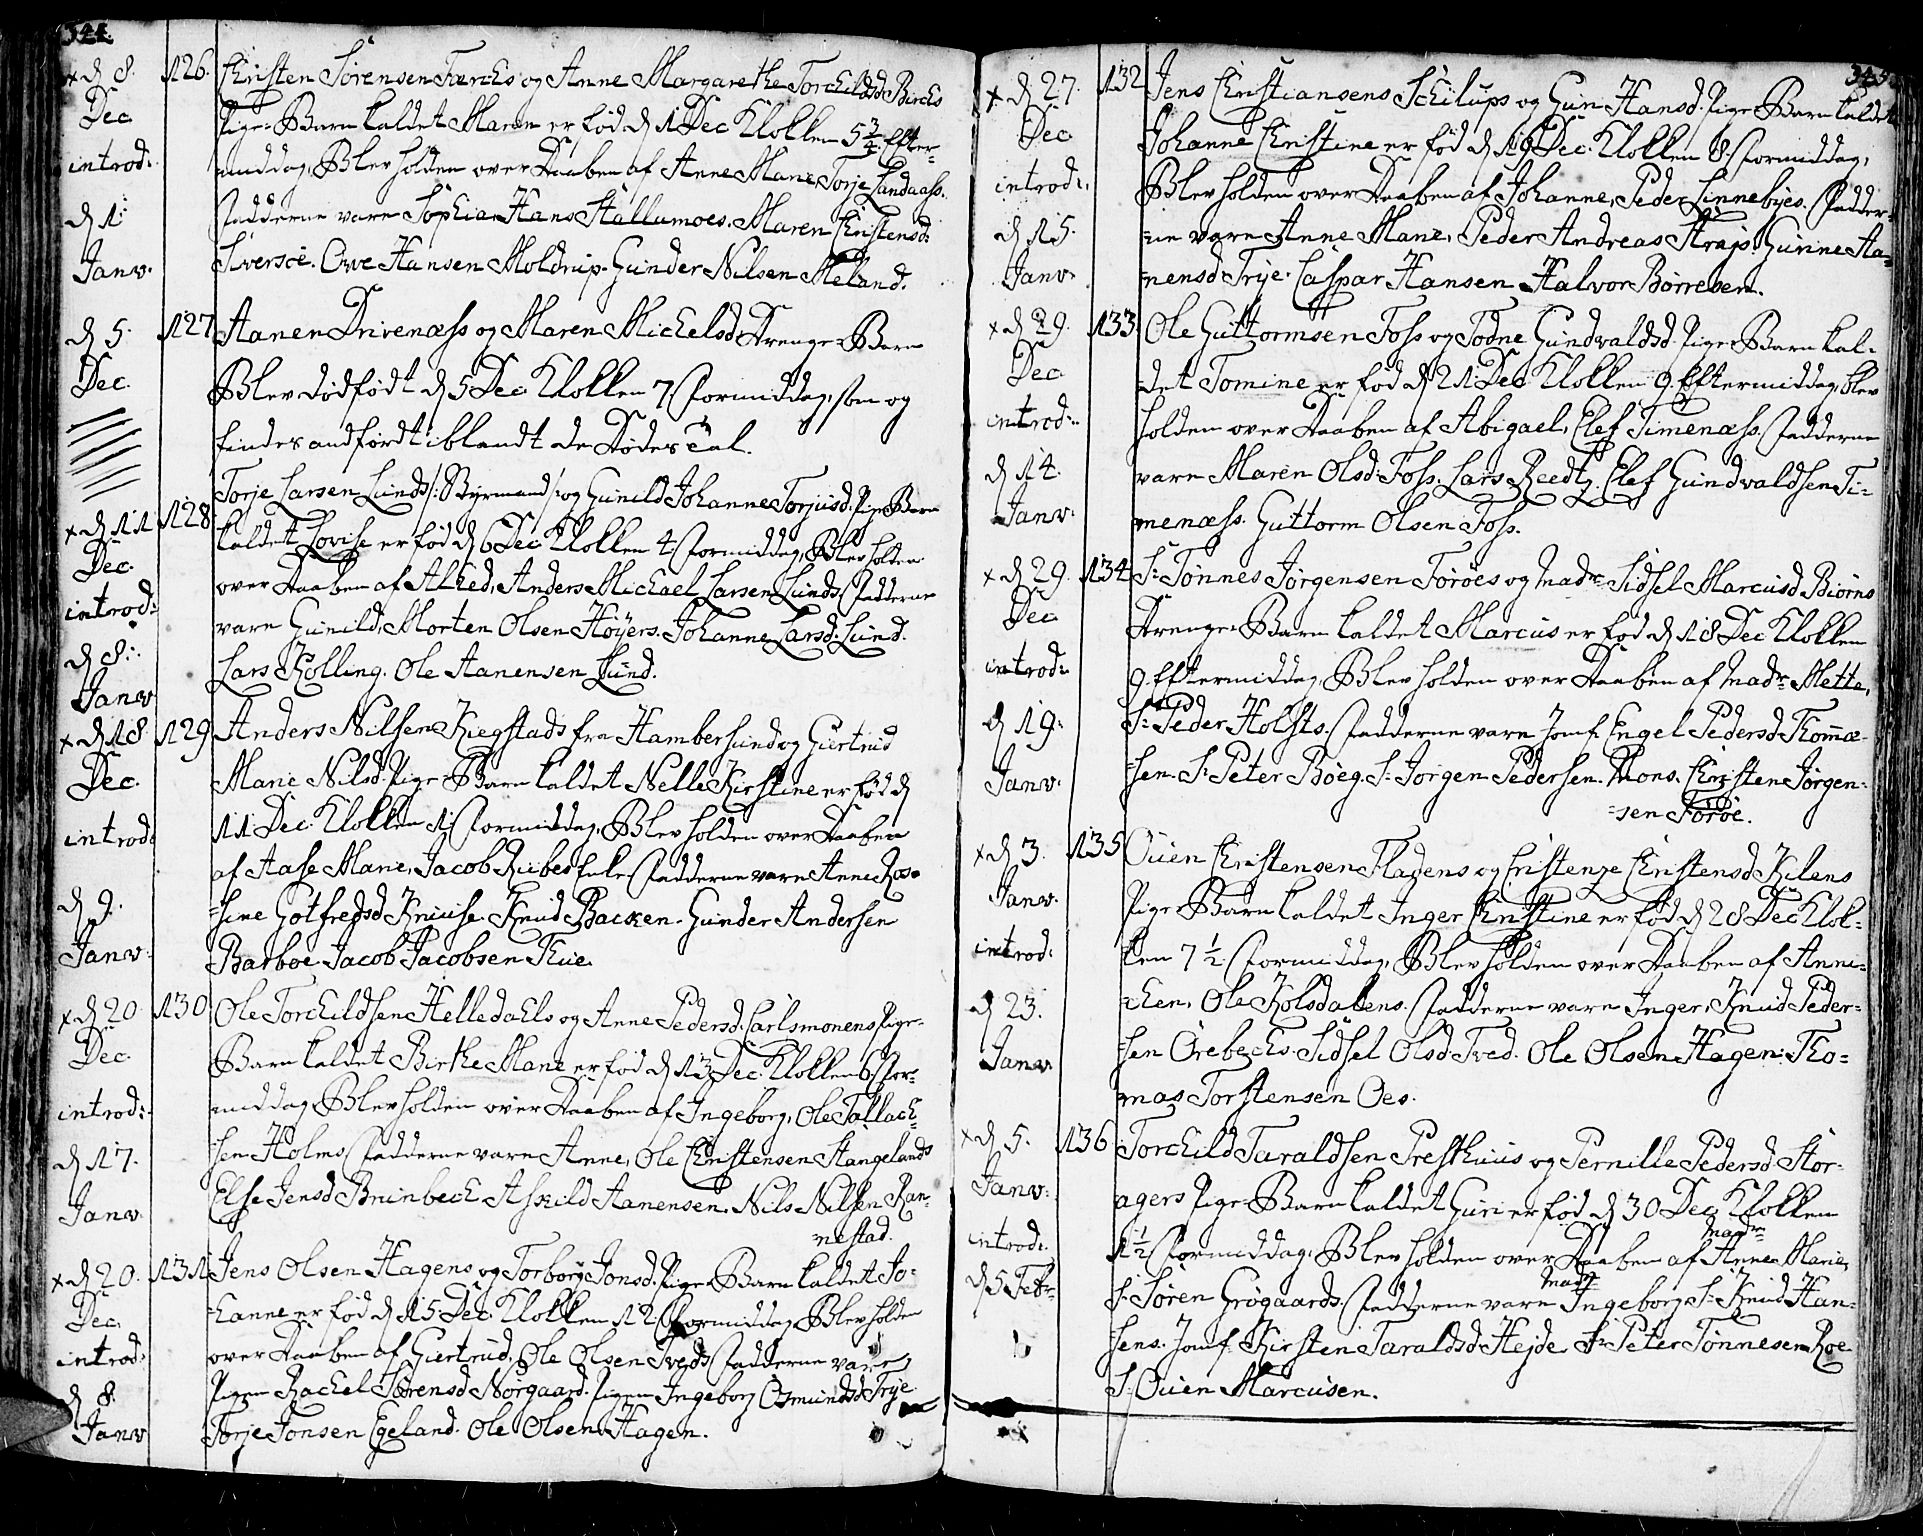 344
x d 8. Dec introd: d 1 Janv.
126. Christen Sørensen Færchs og Anne Margarethe Torchildsd Birchs
Pige-Barn kaldet Maren er fød d 1 Dec Klokken 5 3/4 Efter-
middag, Blev holden over Daaben af Anne Marie Torje Landaass.
Fadderne vare Sophia Hans Stallumoes. Maren Christensd:
Siversøe. Owe Hansen Moldrup. Gunder Nilsen Meland.
d 5. Dec.
127 Aanen Drivenæss og Maren Michelsd: Drenge-Barn
Blev dødfødt d 5 Dec Klokken 7 Formiddag, som og
findes andført iblandt de Dødes Tal.
x d 11 Dec. introd: d 8. Janv
128 Torje Larsen Lunds /: Styrmand :/ og Gunild Johanne Torjusd: Pige-Barn
kaldet Lovise er fød d 6 Dec Klokken 4 Formiddag, Blev holden
over Daaben af Alhed, Anders Michael Larsen Lunds. Fadderne
vare Gunild, Morten Olsen Høyers. Johanne Larsd: Lund.
Lars Kolling. Ole Aanensen Lund.
x d 18. Dec. introd: d 9. Janv.
129 Anders Nilsen Kiegstads fra Hambersund og Giertrud
Marie Nilsd. Pige-Barn kaldet Nelle Kirstine er fød d
11 Dec. Klokken 1 Formiddag, Blev holden over Daaben
af Aase Marie, Jacob Riibes Enke Fadderne vare Anne Ro-
sine Gotfredsd Knuuse. Knud Backen. Gunder Andersen
Barboe Jacob Jacobsen Thue.
x d 20 Dec. introd: d 17. Janv.
130 Ole Torchildsen Helledahls og Anne Pedersd. Carlsmonens Pige-
Barn kaldet Birthe Marie er fød d 13 Dec. Klokken 6 For-
middag, Blev holden over Daaben af Ingeborg, Ole Tallach-
sen Holms Fadderne vare Anne, Ole Christensen Stangelands
Else Jensd Bruinbech Askild Aanensen. Nils Nilsen Ran-
nestad.
x d 20. Dec. introd: d 8. Janv
131 Jens Olsen Hagens og Torborg Jonsd. Pige Barn kaldet Jo-
hanne er fød d 15 Dec. Klokken 12 Formiddag Blev holden
over Daaben af Giertrud, Ole Olsen Tveds Fadderne vare
Pigen Rachel Sørensd Nørgaard. Pigen Ingeborg Osmundsd Trye.
Torje Jonsen Egeland. Ole Olsen Hagen.
345
x d 27. Dec introd: d 15. Janv.
132 Jens Christiansens Schilups og Guri Hansd. Pige Barn kaldet
Johanne Christine er fød d 19 Dec. Klokken 8. Formiddag,
Blev holden over Daaben af Johanne, Peder Linnebyes. Fadder-
ne vare Anne Marie, Peder Andreas Strays. Gunne Aa-
nensd Trye. Caspar Hansen. Halvor Børresen.
x d 29. Dec introd: d 14. Janv.
133 Ole Guttormsen Foss og Todne Gundvaldsd. Pige-Barn kal-
det Tomine er fød d 21 Dec Klokken 9. Eftermiddag, blev
holden over Daaben af Abigael, Elef Timenæss. Fadderne
vare Maren Olsd. Foss. Lars Reedtz. Elef Gundvaldsen Ti-
menæss. Guttorm Olsen Foss.
x d 29. Dec introd: d 19. Janv.
134 Sr Tønnes Jørgensen Forøes og Madme Sidsel Marcusd Biørns
Drenge-Barn kaldet Marcus er fød d 18 Dec Klokken
9. Eftermiddag, Blev holden over Daaben af Madme Mette,
Sr Peder Holsts. Fadderne vare Jomf. Engel Pedersd Thomæ-
sen. Sr Peter Bøeg. Sr Jørgen Pedersen. Mons. Christen Jørgen-
sen Forøe.
x d 3. Janv. introd: d 23. Janv.
135 Ouen Christensen Fladens og Christenze Christensd Kilens
Pige-Barn kaldet Inger Christine er fød d 28 Dec Klok-
ken 7 1/2 Formiddag, Blev holden over Daaben af Anne-
chen, Ole Kolsdalens. Fadderne vare Inger, Knud Peder-
sen Ørebechs. Sidsel Olsd Tved. Ole Olsen Hagen. Tho-
mas Torstensen Oes.
x d 5. Janv: introd: d 5 Febr
136 Torchild Taraldsen Presthuus og Pernille Pedersd Stor-
agers Pige-Barn kaldet Guri er fød d 30 Dec Klokken
1 1/2 Formiddag, Blev holden over Daaben af Madme Anne Marie,
Sr Søren Grøgaards. Fadderne vare Madme Ingeborg Sr Knud Han-
sens. Jomf. Kirsten Taraldsd Hejde Sr Peter Tønnesen Roe
Sr Ouen Marcusen.